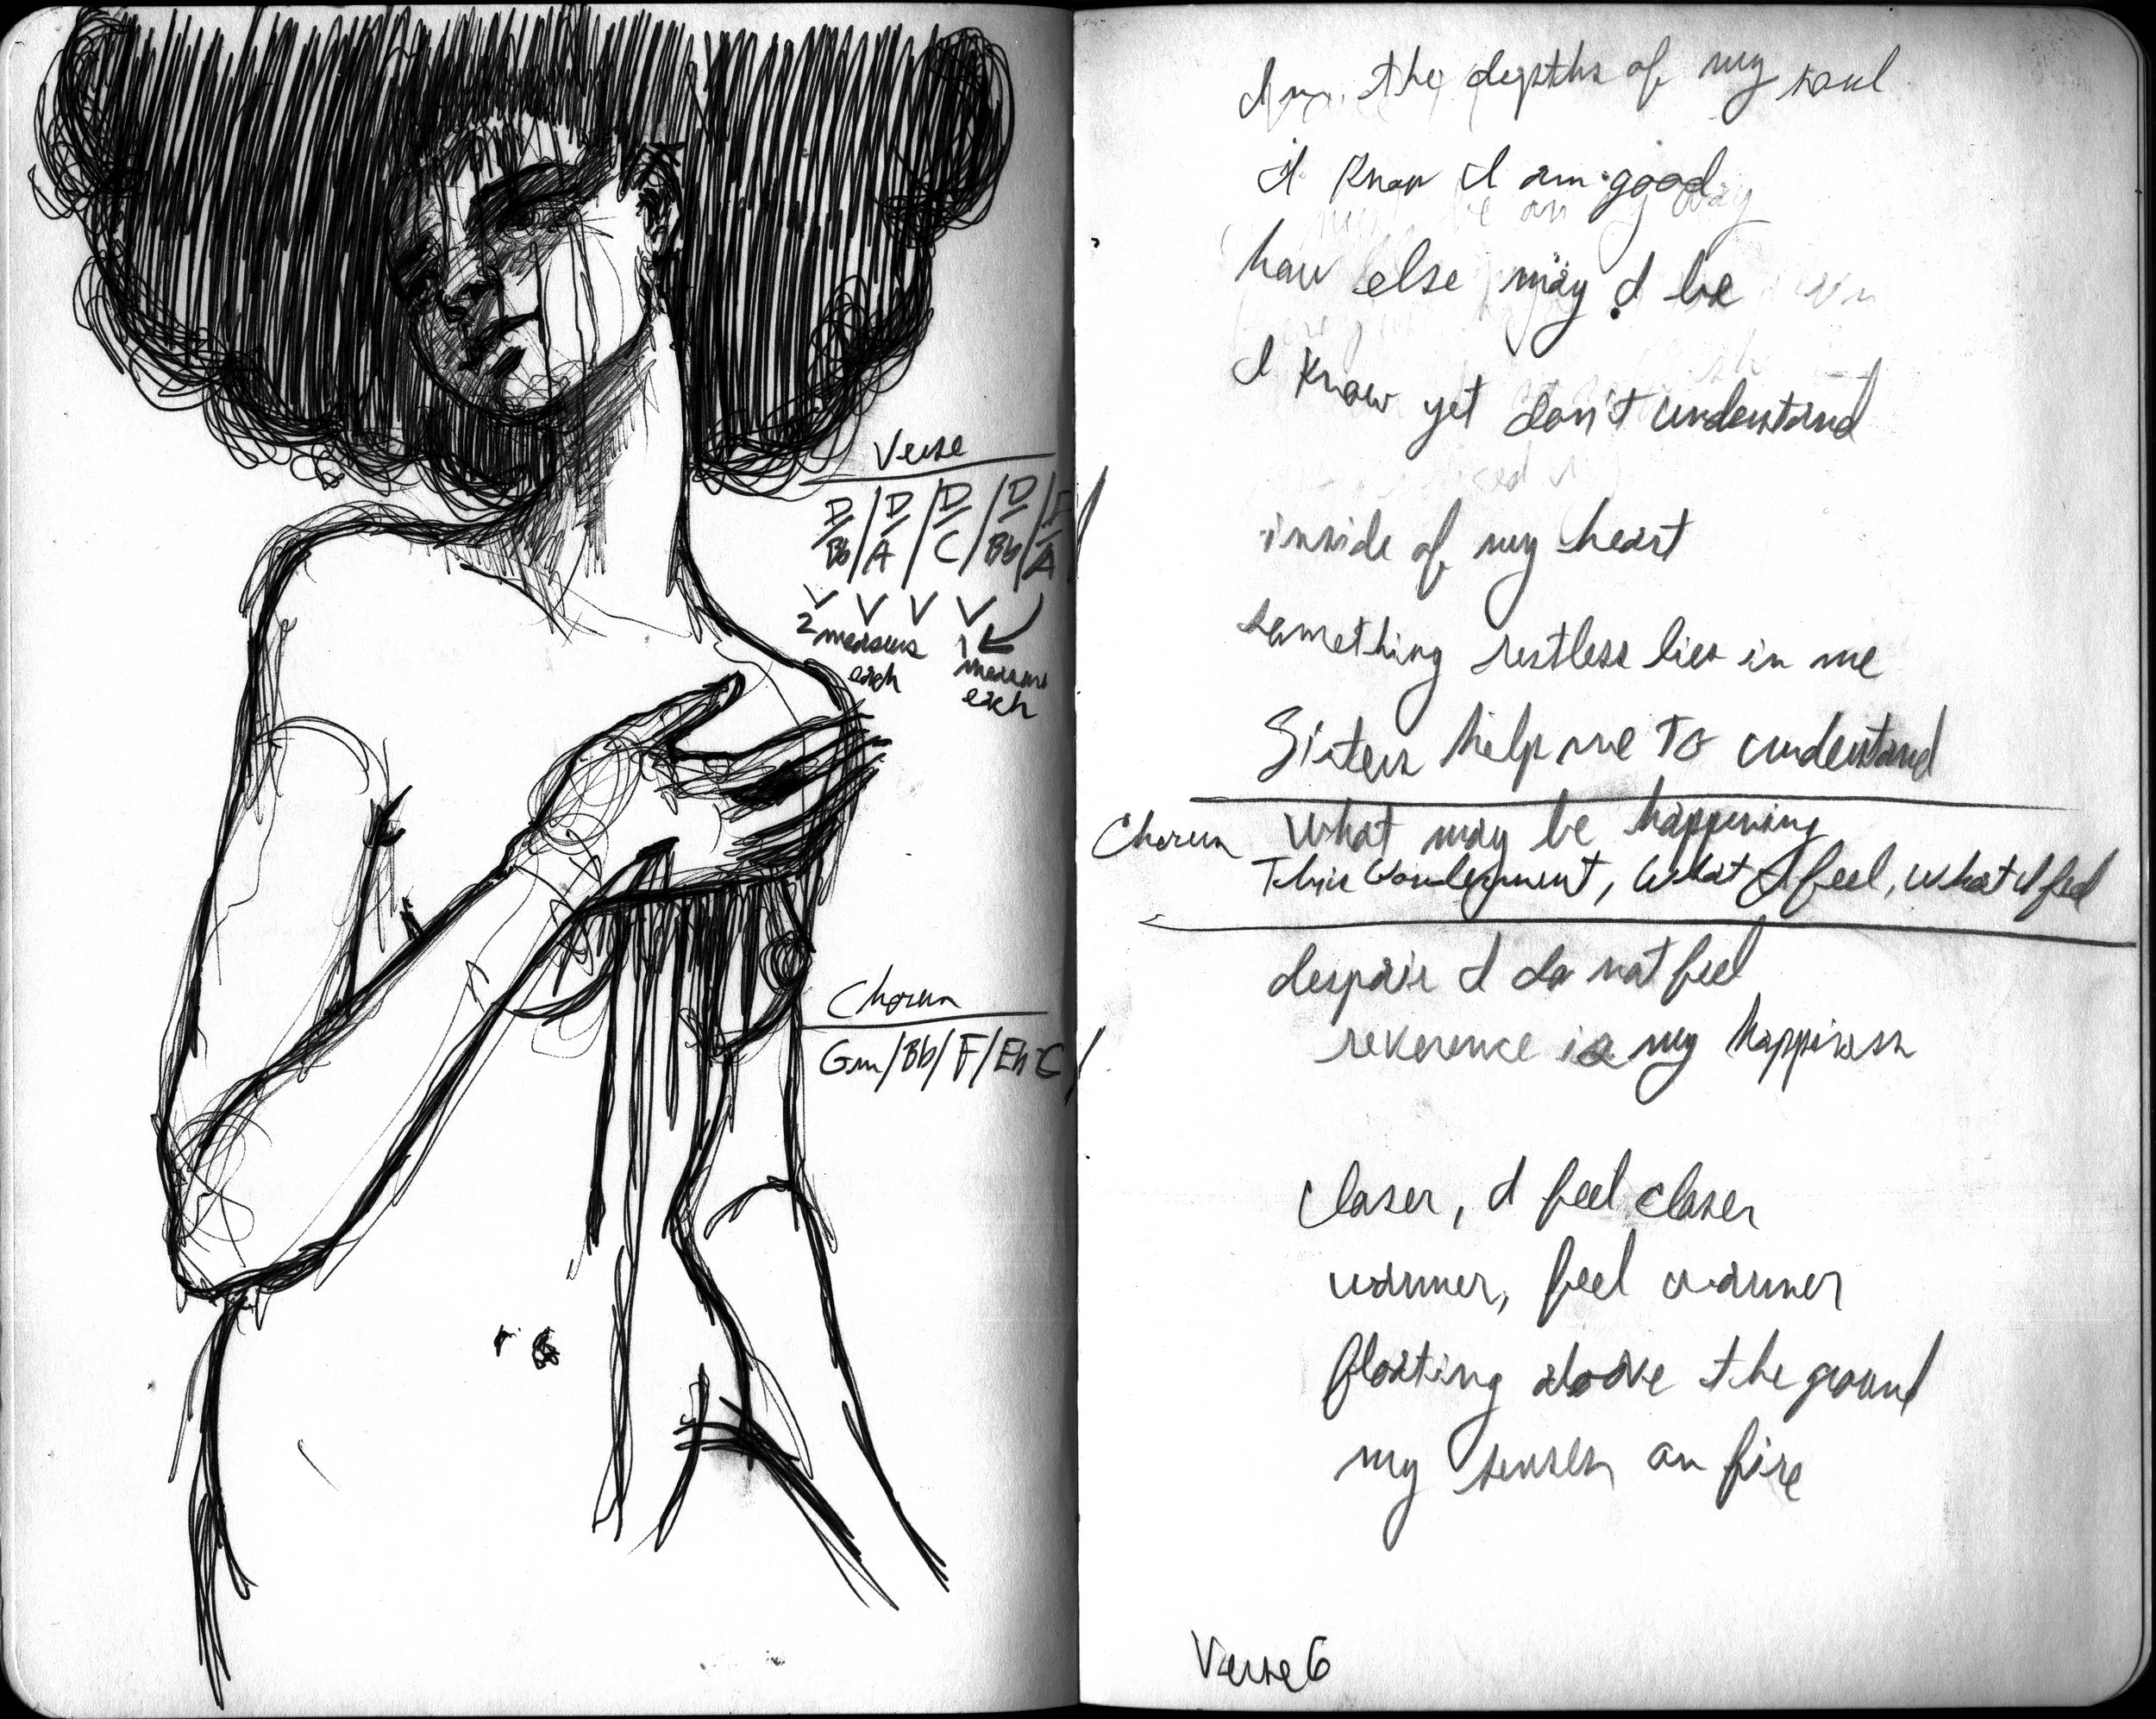 Verse
D/Bb / D/A / D/C / D/Bb / D/A /
2 measures each
1 measure each
Chorus
Gm / Bb / F / Eb C /
In the depths of my soul
I know I am good
how else may I be
I know yet don't understand
inside of my heart
something restless lies in me
Sisters help me to understand
Chorus What may be happening
This Wonderment, What I feel, what I feel
despair I do not feel
reverence is my happiness
Closer, I feel closer
warmer, feel warmer
floating above the ground
my senses on fire
Verse 6